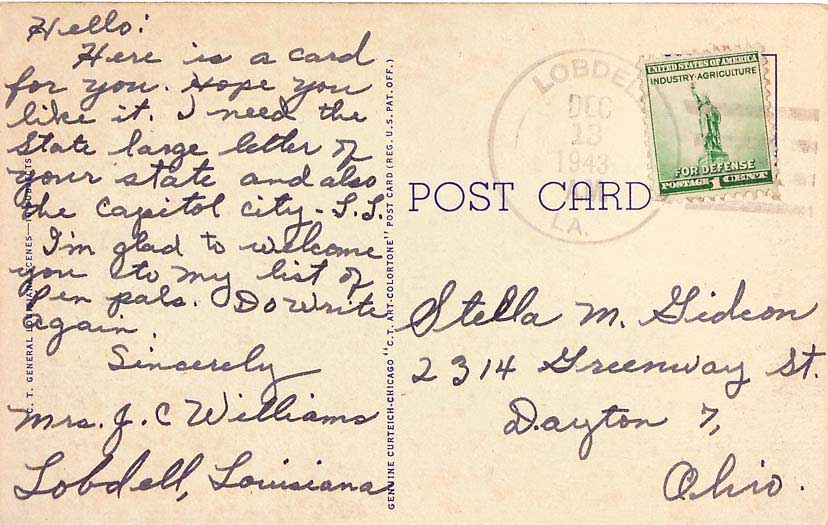 Hello:
Here is a card
for you. Hope you
like it. I need the
State large letter of
your state and also
the Capitol city - L.L.
I'm glad to welcome
you to my list of
Pen pals. Do write
again.
Sincerely
Mrs. J. C Williams
Lobdell, Louisiana
C. T. GENERAL SCENES
GENUINE CURTEICH-CHICAGO "C. T. ART-COLORTONE" POST CARD (REG. U.S. PAT. OFF.)
POST CARD
LOBDELL
DEC
13
1943
LA.
UNITED STATES OF AMERICA
INDUSTRY·AGRICULTURE
FOR DEFENSE
POSTAGE 1 CENT
Stella M. Gideon
2314 Greenway St.
Dayton 7,
Ohio.